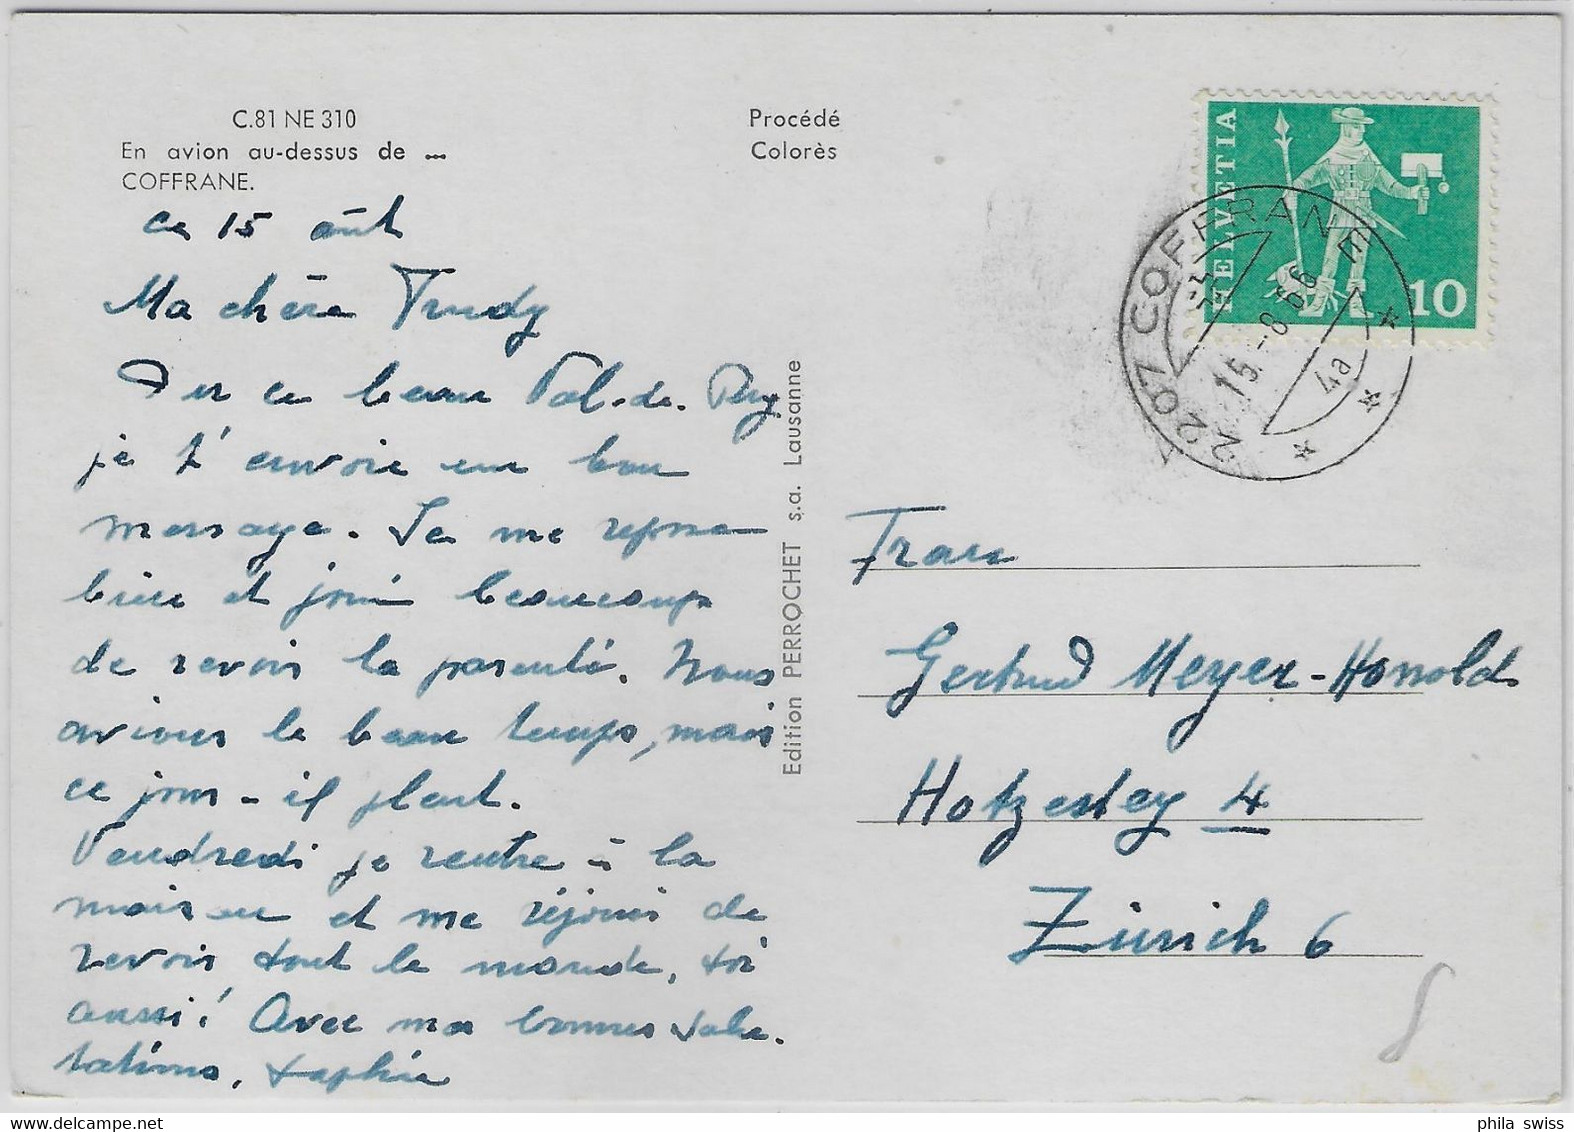 C.81 NE 310
En avion au-dessus de ...
COFFRANE.
Procédé
Colorès
ce 15 août
Ma chère Trudy
De ce beau Val-de-Ruz
je t'envoie un bon
message. Je me repose
bien et jouis beaucoup
de revoir la parenté. Nous
avions le beau temps, mais
ce jour - il pleut.
Vendredi je rentre à la
maison et me réjouis de
revoir tout le monde, toi
aussi! Avec ma bonnes salu-
tations, Sophie
Edition PERROCHET s.a. Lausanne
HELVETIA
10
2207 COFFRANE
15.-8.66
4a
Frau
Gertrud Meyer-Honold
Hotzesteg 4
Zürich 6
phila swiss